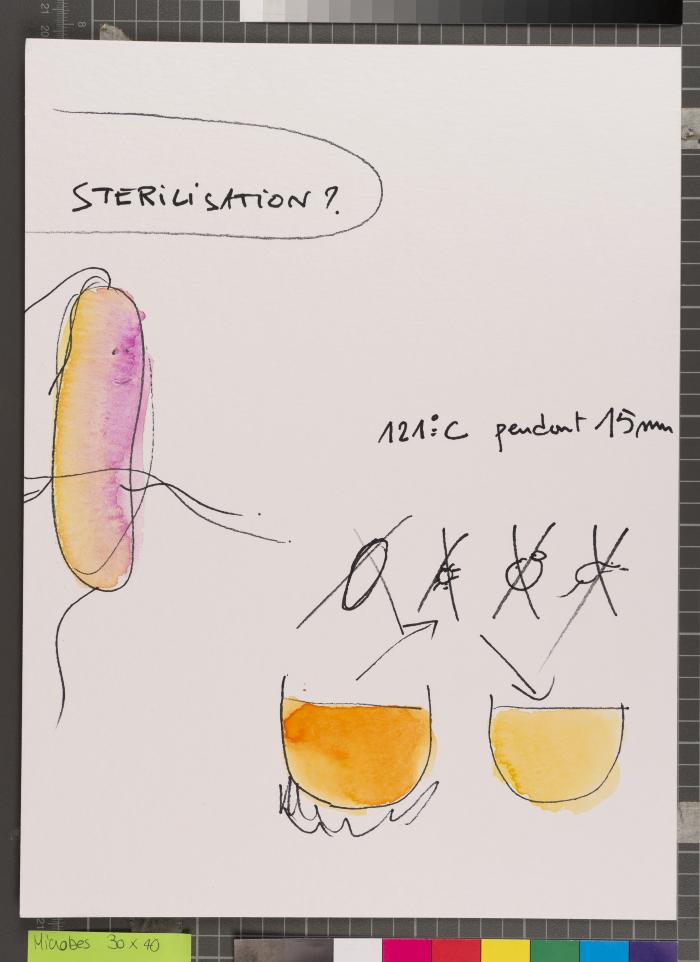 STERiLiSATiON ?
121°C pendant 15 min
Microbes 30 x 40